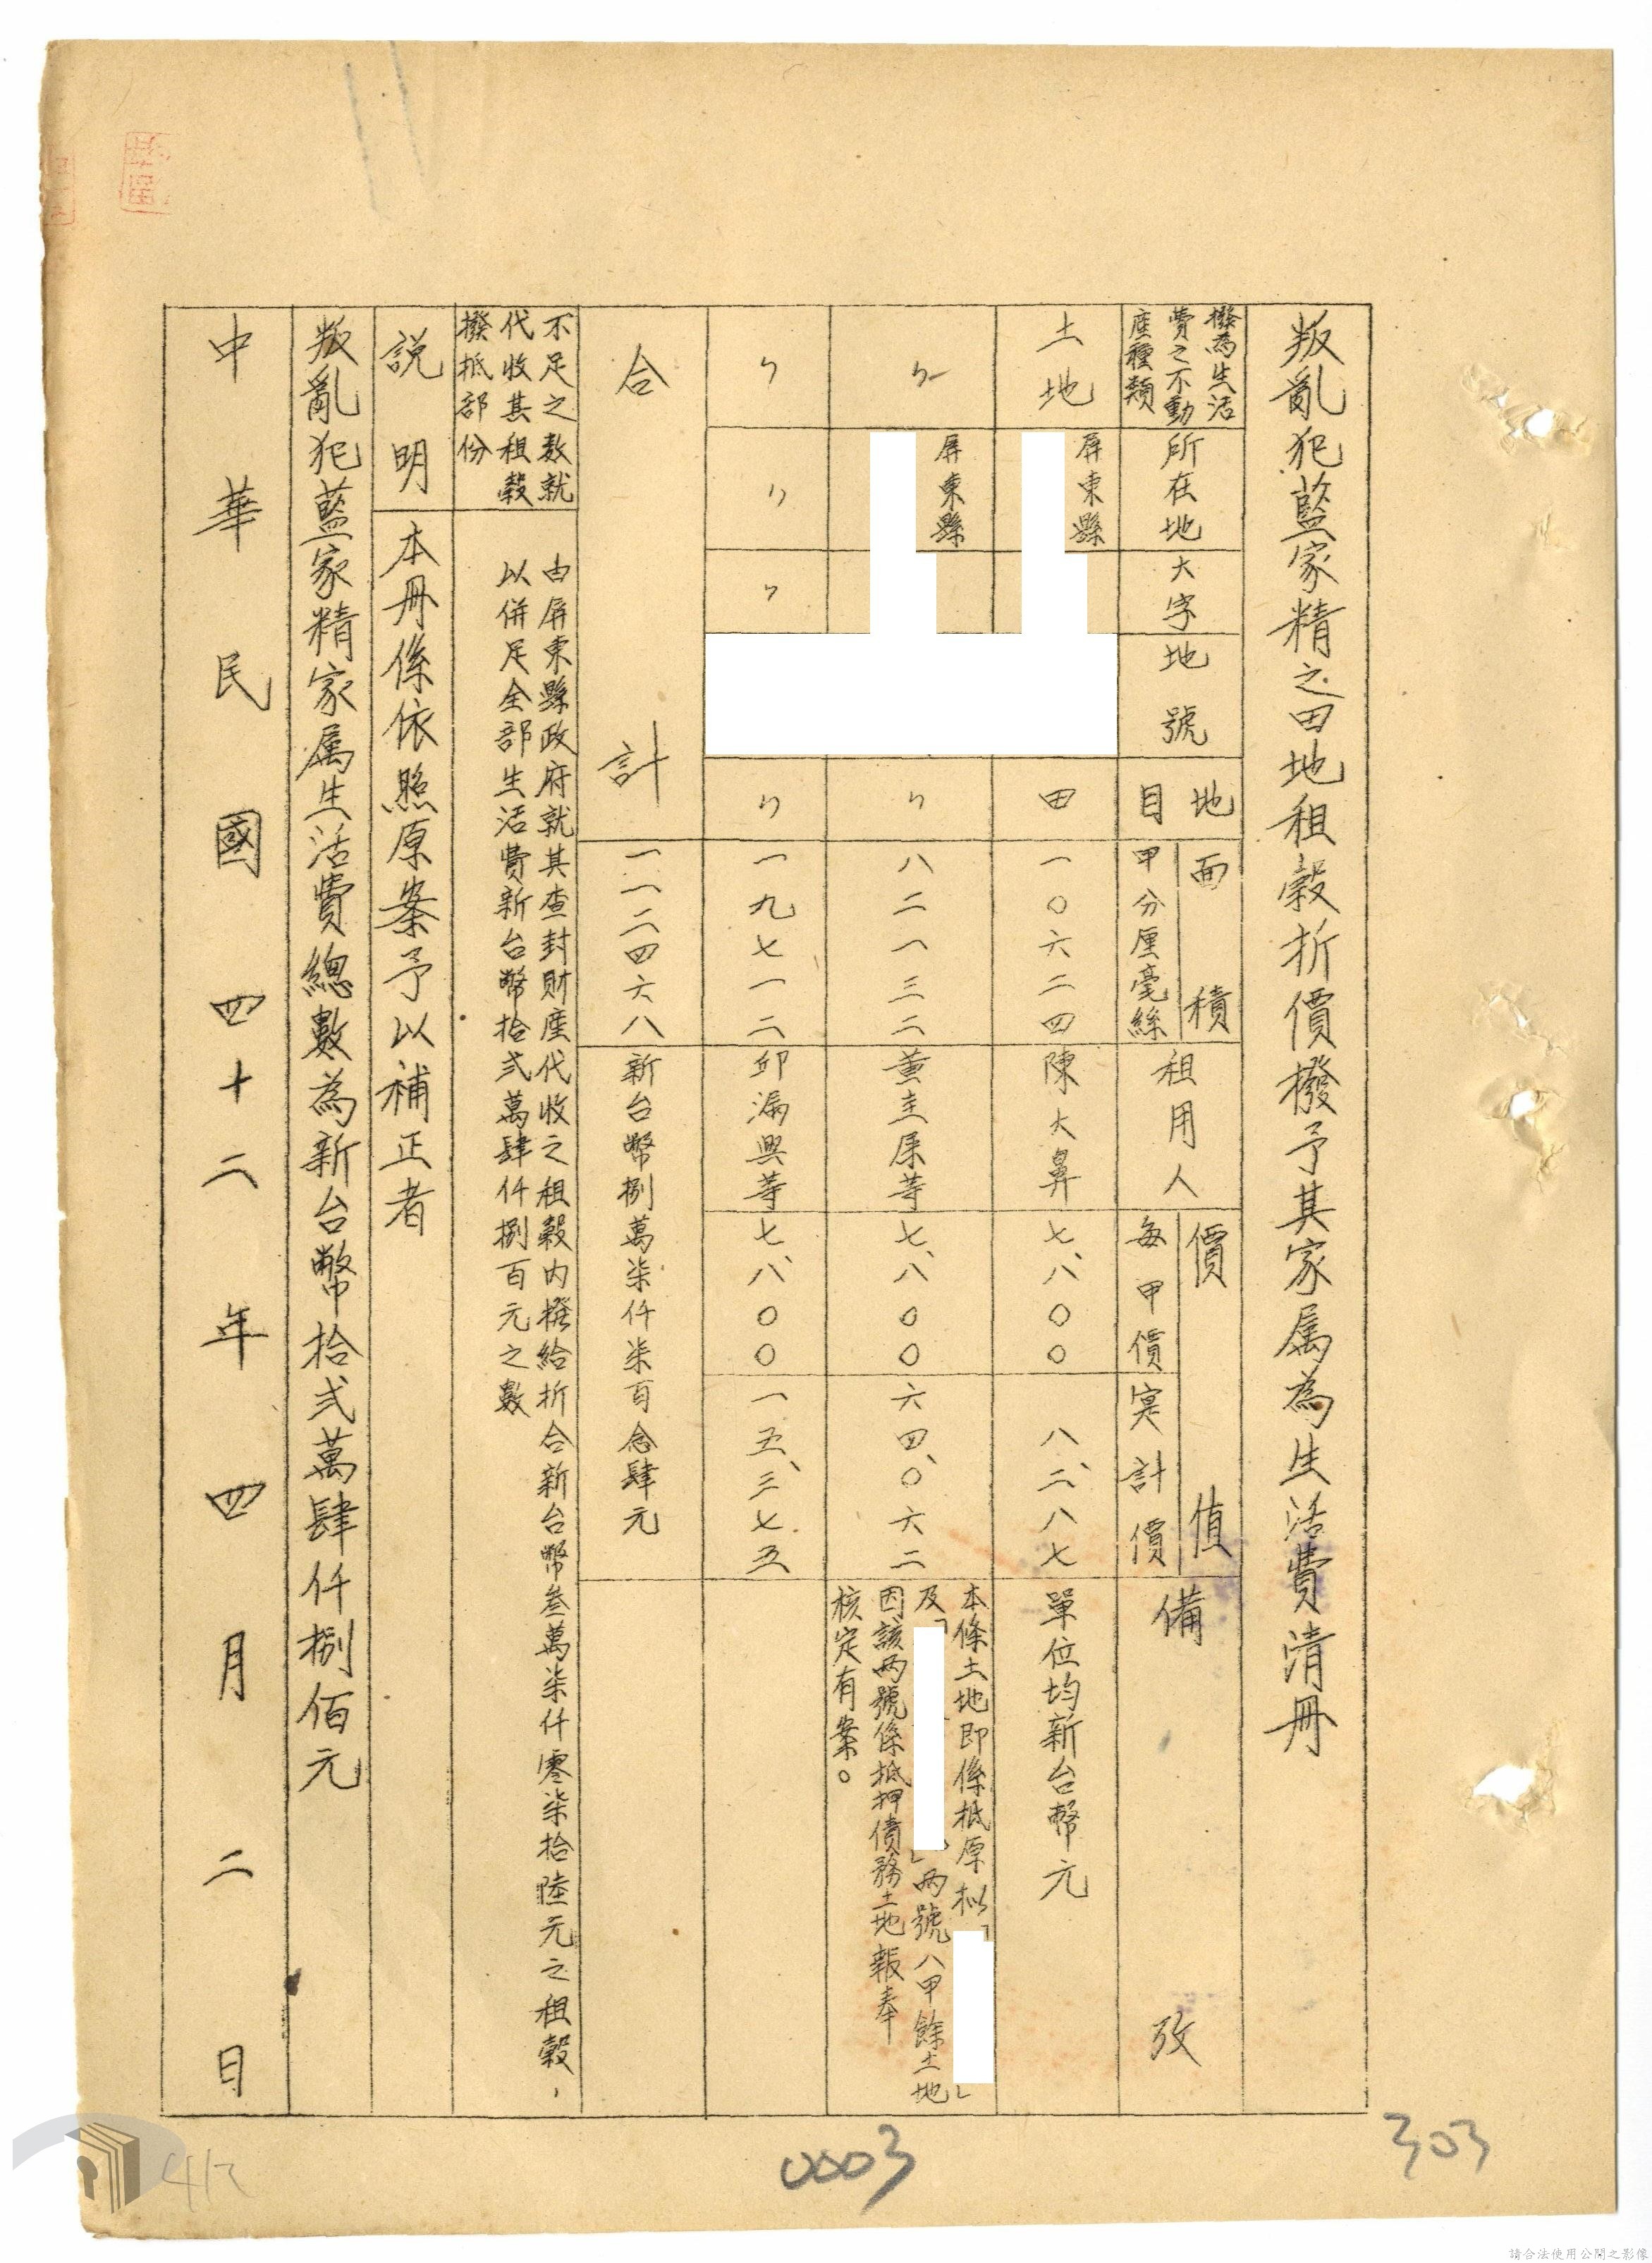 叛亂犯藍家精之田地租穀折價撥予其家屬為生活費清冊
撥為生活
費之不動
產種類
所在地
大字
地號
地目
面積
甲分厘毫絲
租用人
價值
每甲價
實計價
備攷
土地
屏東縣
田
一〇六二四
陳大鼻
七、八〇〇
八、二八七
單位均新台幣元
〃
屏東縣
〃
八二一三二
七、八〇〇
六四、〇六二
本條土地即係抵原拟「」
及「」兩號八甲餘土地
因該兩號係抵押債務土地報奉
核定有案。
〃
〃
〃
〃
一九七一二
邱漏興等
七、八〇〇
一五、三七五
合計
一一二四六八
新台幣捌萬柒仟柒百念肆元
不足之數就
代收其租穀
撥抵部份
由屏東縣政府就其查封財產代收之租穀內撥給折合新台幣叁萬柒仟零柒拾陸元之租穀，
以併足全部生活費新台幣拾弍萬肆仟捌百元之數
說明
本冊係依照原案予以補正者
叛亂犯藍家精家屬生活費總數為新台幣拾弍萬肆仟捌佰元
中華民國四十二年四月二日
303
0003
請合法使用公開之影像